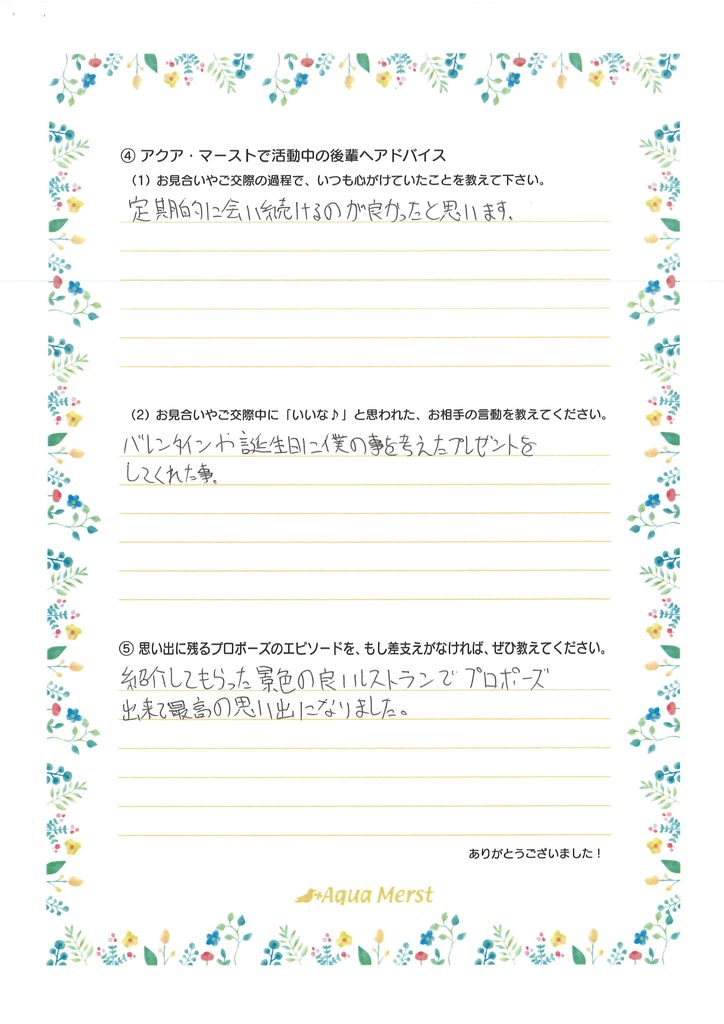 ④ アクア・マーストで活動中の後輩へアドバイス
（1）お見合いやご交際の過程で、いつも心がけていたことを教えて下さい。
定期的に会い続けるのが良かったと思います。
（2）お見合いやご交際中に「いいな♪」と思われた、お相手の言動を教えてください。
バレンタインや誕生日に僕の事を考えたプレゼントを
してくれた事。
⑤ 思い出に残るプロポーズのエピソードを、もし差支えがなければ、ぜひ教えてください。
紹介してもらった景色の良いレストランでプロポーズ
出来て最高の思い出になりました。
ありがとうございました！
Aqua Merst